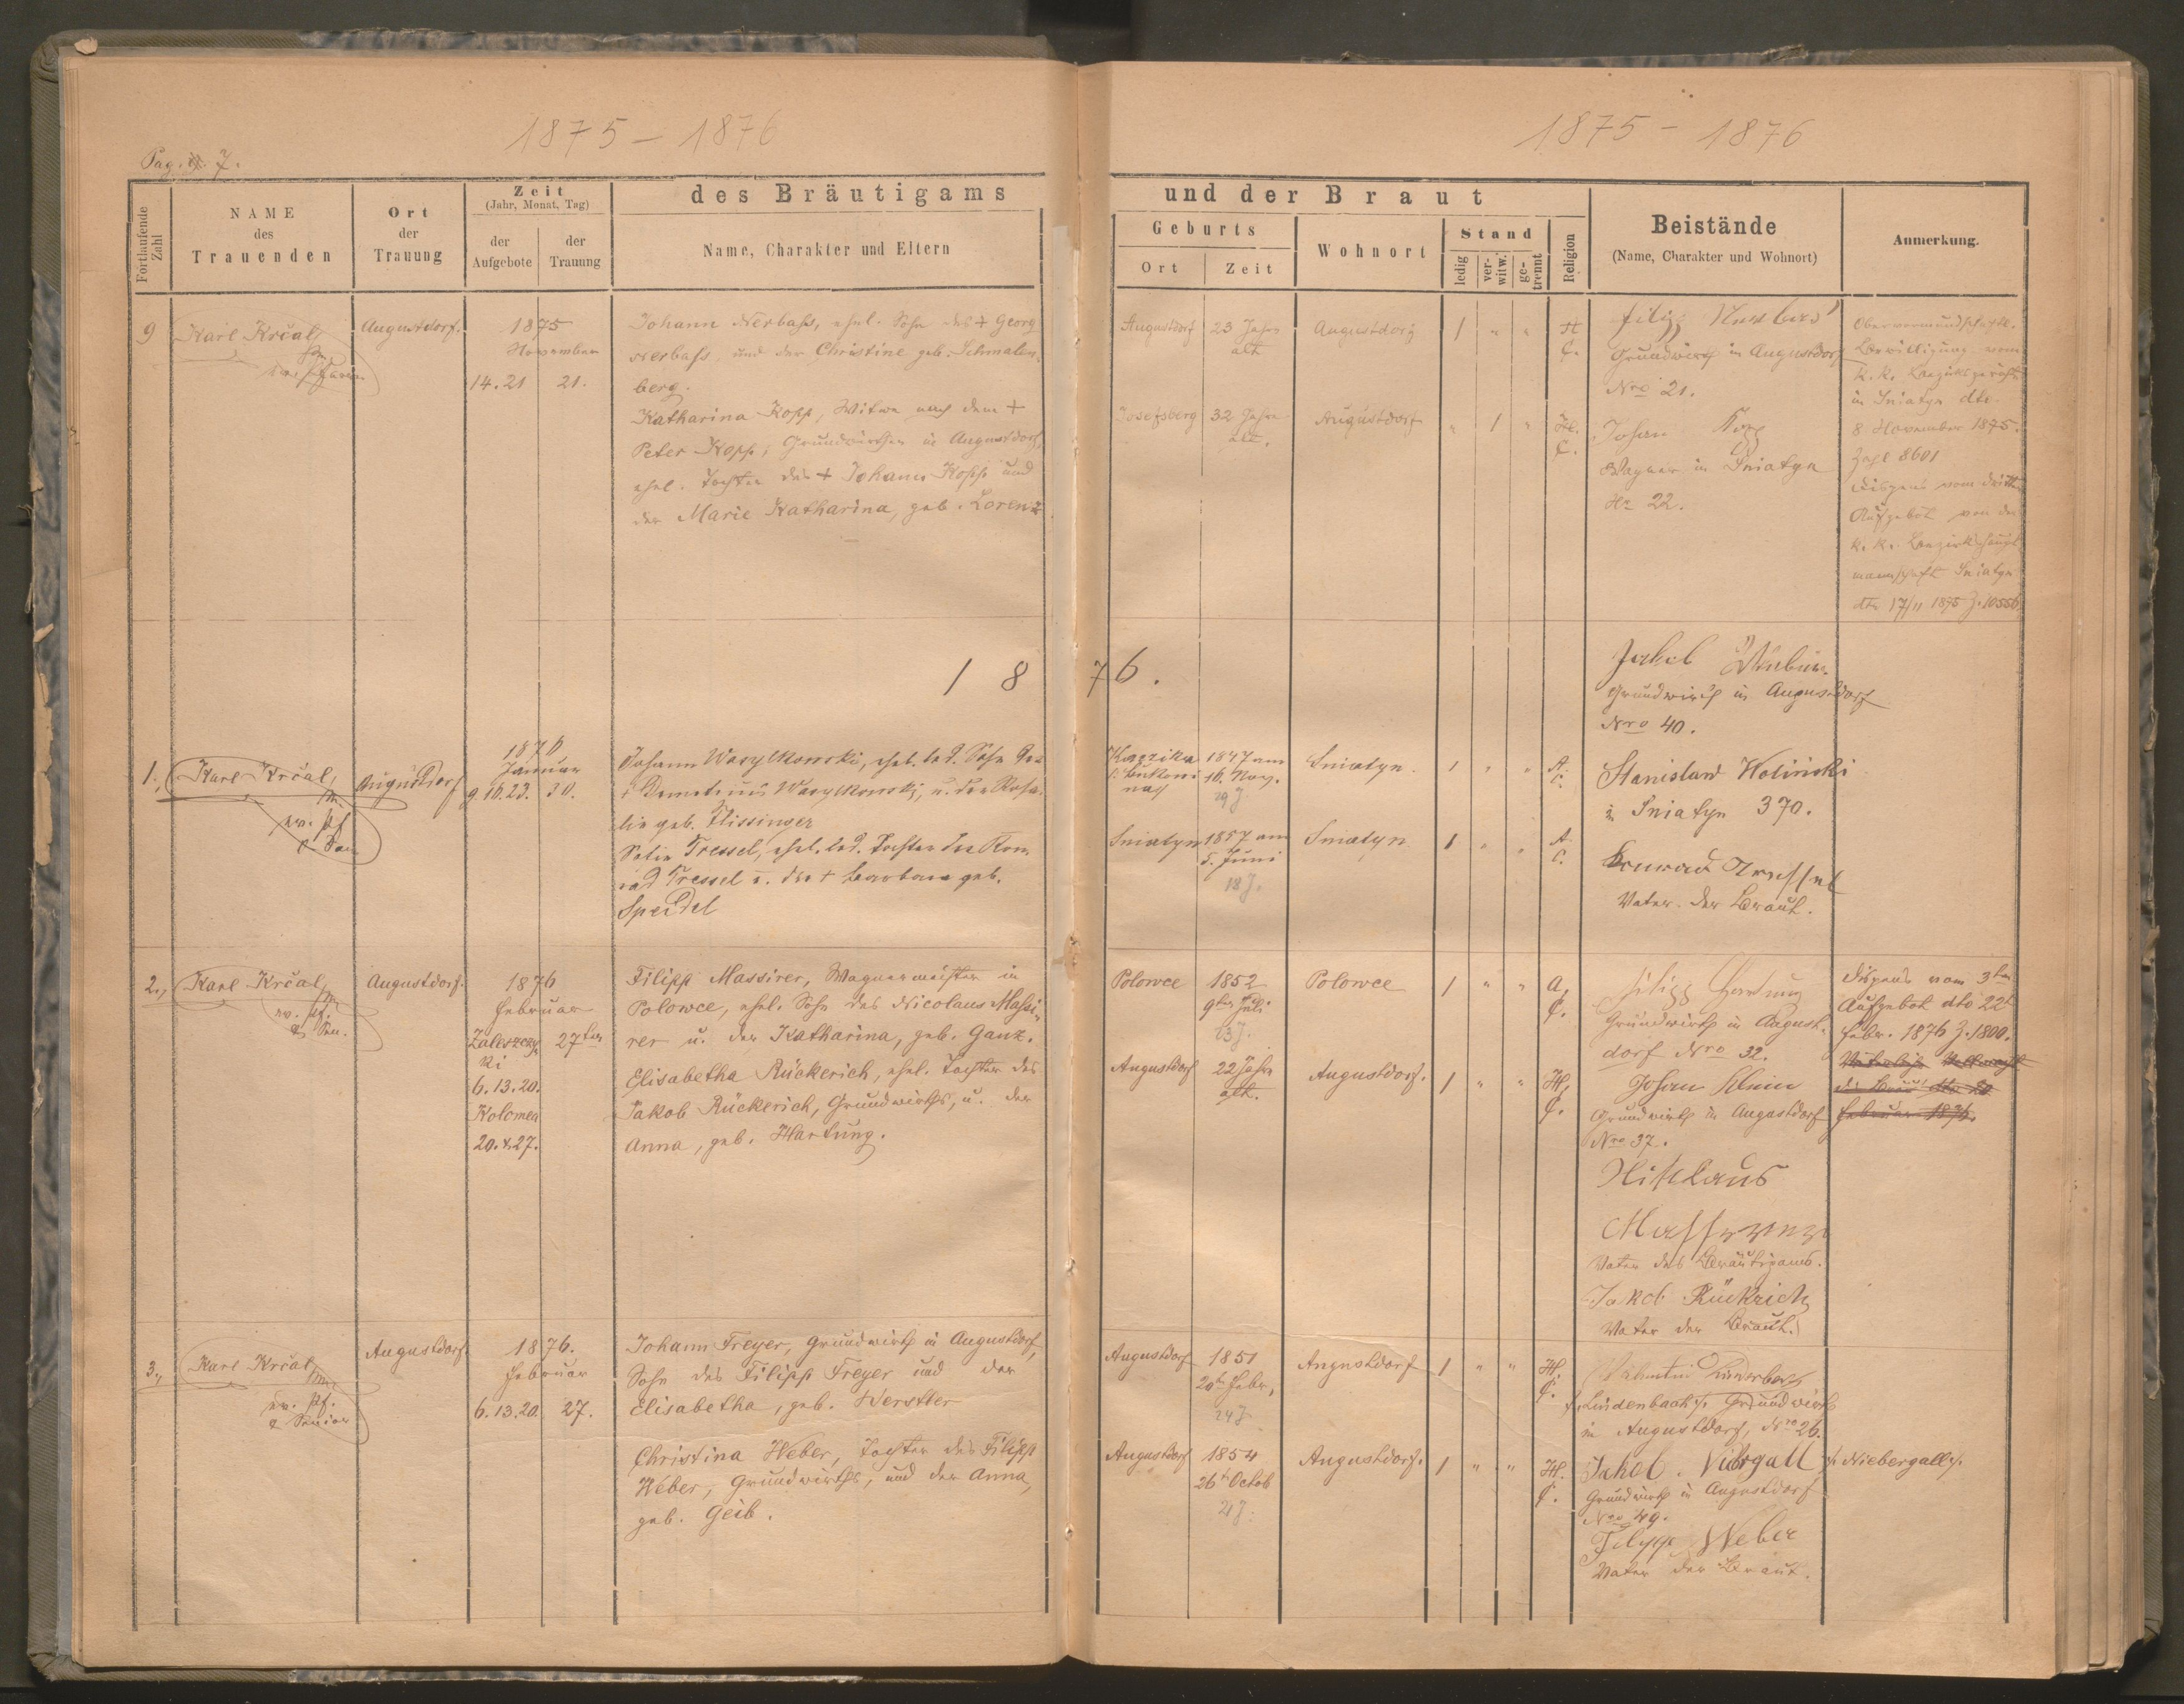 1875 – 1876
1875 – 1876
Pag. 7.
Fortlaufende Zahl
NAME
des
Trauenden
Ort
der
Trauung
Zeit
(Jahr, Monat, Tag)
der
Aufgebote
der
Trauung
des Bräutigams
Name, Charakter und Eltern
und der Braut
Geburts
Ort
Zeit
Wohnort
Stand
ledig
ver-
witw.
ge-
trennt
Religion
Beistände
(Name, Charakter und Wohnort)
Anmerkung.
9
Karl Krčal,
Augustdorf.
1875
November
14. 21
21.
Johann Nerbass, ehel. Sohn des + Georg
Nerbass, und der Christine geb. Schmalen-
berg.
Katharina Kopp, Witwe nach dem +
Peter Kopp, Grundwirthen in Augustdorf,
ehel. Tochter des + Johann Kopp und
der Marie Katharina, geb. Lorenz
Augustdorf
23 Jahre
alt
Augustdorf
1 " "
H.
C.
Josefsberg
32 Jahre
alt.
Augustdorf
" 1 "
H.
C.
Filipp
Grundwirth in Augustdorf
Nro 21.
Johan Kopp
Wagner in Sniatyn
Nr 22.
Obervormundschaftl.
Bewilligung vom
k. k. Bezirksgericht
in Sniatyn dto.
8 November 1875.
Zahl 8601
Dispens vom dritten
Aufgebot von der
k. k. Bezirkshaupt
mannschaft Sniatyn
dto 17/11 1875 Z. 10556
1876.
Jakob
Grundwirth in Augustdorf
Nro 40.
1.,
Karl Krčal,
ev. Pf.
Augustdorf
1876
Januar
9. 16. 23.
30.
Johann Wasylkowski, ehel. led. Sohn des
+ Demetrius Wasylkowski, u. der Rosa-
lie geb. Flissinger
Sofie Tressel, ehel. led. Tochter des Kon-
rad Tressel u. der + Barbara geb.
Speidel
1847 am
16. Nov.
29 J.
Sniatyn.
1 " "
A.
C.
Sniatyn
1857 am
5. Juni
18 J.
Sniatyn
1 " "
A.
C.
Stanislaw Woliński
in Sniatyn 370.
Konrad Tressel
Vater der Braut.
2.,
Karl Krčal,
ev. Pf.
& Sen.
Augustdorf.
1876
Februar
Zaleszczy
ki
6. 13. 20.
Kolomea
20. & 27.
27ten
Filipp Massirer, Wagnermeister in
Polowce, ehel. Sohn des Nicolaus Massi-
rer u. der Katharina, geb. Ganz.
Elisabetha Rückerich, ehel. Tochter des
Jakob Rückerich, Grundwirths, u. der
Anna, geb. Hartung.
Polowce
1852
9ten Juli
23 J.
Polowce
1 " "
A.
C.
Augustdorf
22 Jahre
alt.
Augustdorf.
1 " "
H.
C.
Filipp Hartung
Grundwirth in August-
dorf Nro 32.
Johan Klein
Grundwirth in Augustdorf
Nro 37.
Niklaus
Vater des Bräutigams.
Jakob Rückrich
Vater der Braut.
Dispens vom 3ten
Aufgebot dto 22t
Febr. 1876 Z. 1800.
Februar 1876.
3.,
Karl Krčal,
ev. Pf.
& Senior
Augustdorf.
1876.
Februar
6. 13. 20
27.
Johann Freyer, Grundwirth in Augustdorf,
Sohn des Filipp Freyer und der
Elisabetha, geb. Werstler
Christina Weber, Tochter des Filipp
Weber, Grundwirths, und der Anna,
geb. Geib.
Augustdorf
1851
20t Febr.,
24 J
Augustdorf
1 " "
H.
C.
Augustdorf
1854
26t Octob
21 J.
Augustdorf.
1 " "
H.
C.
/: Lindenbach :/ Grundwirth
in Augustdorf, Nro 26.
Jakob Nibrgall /: Niebergall :/.
Grundwirth in Augustdorf
Nro 49.
Filypp Weber
Vater der Braut.